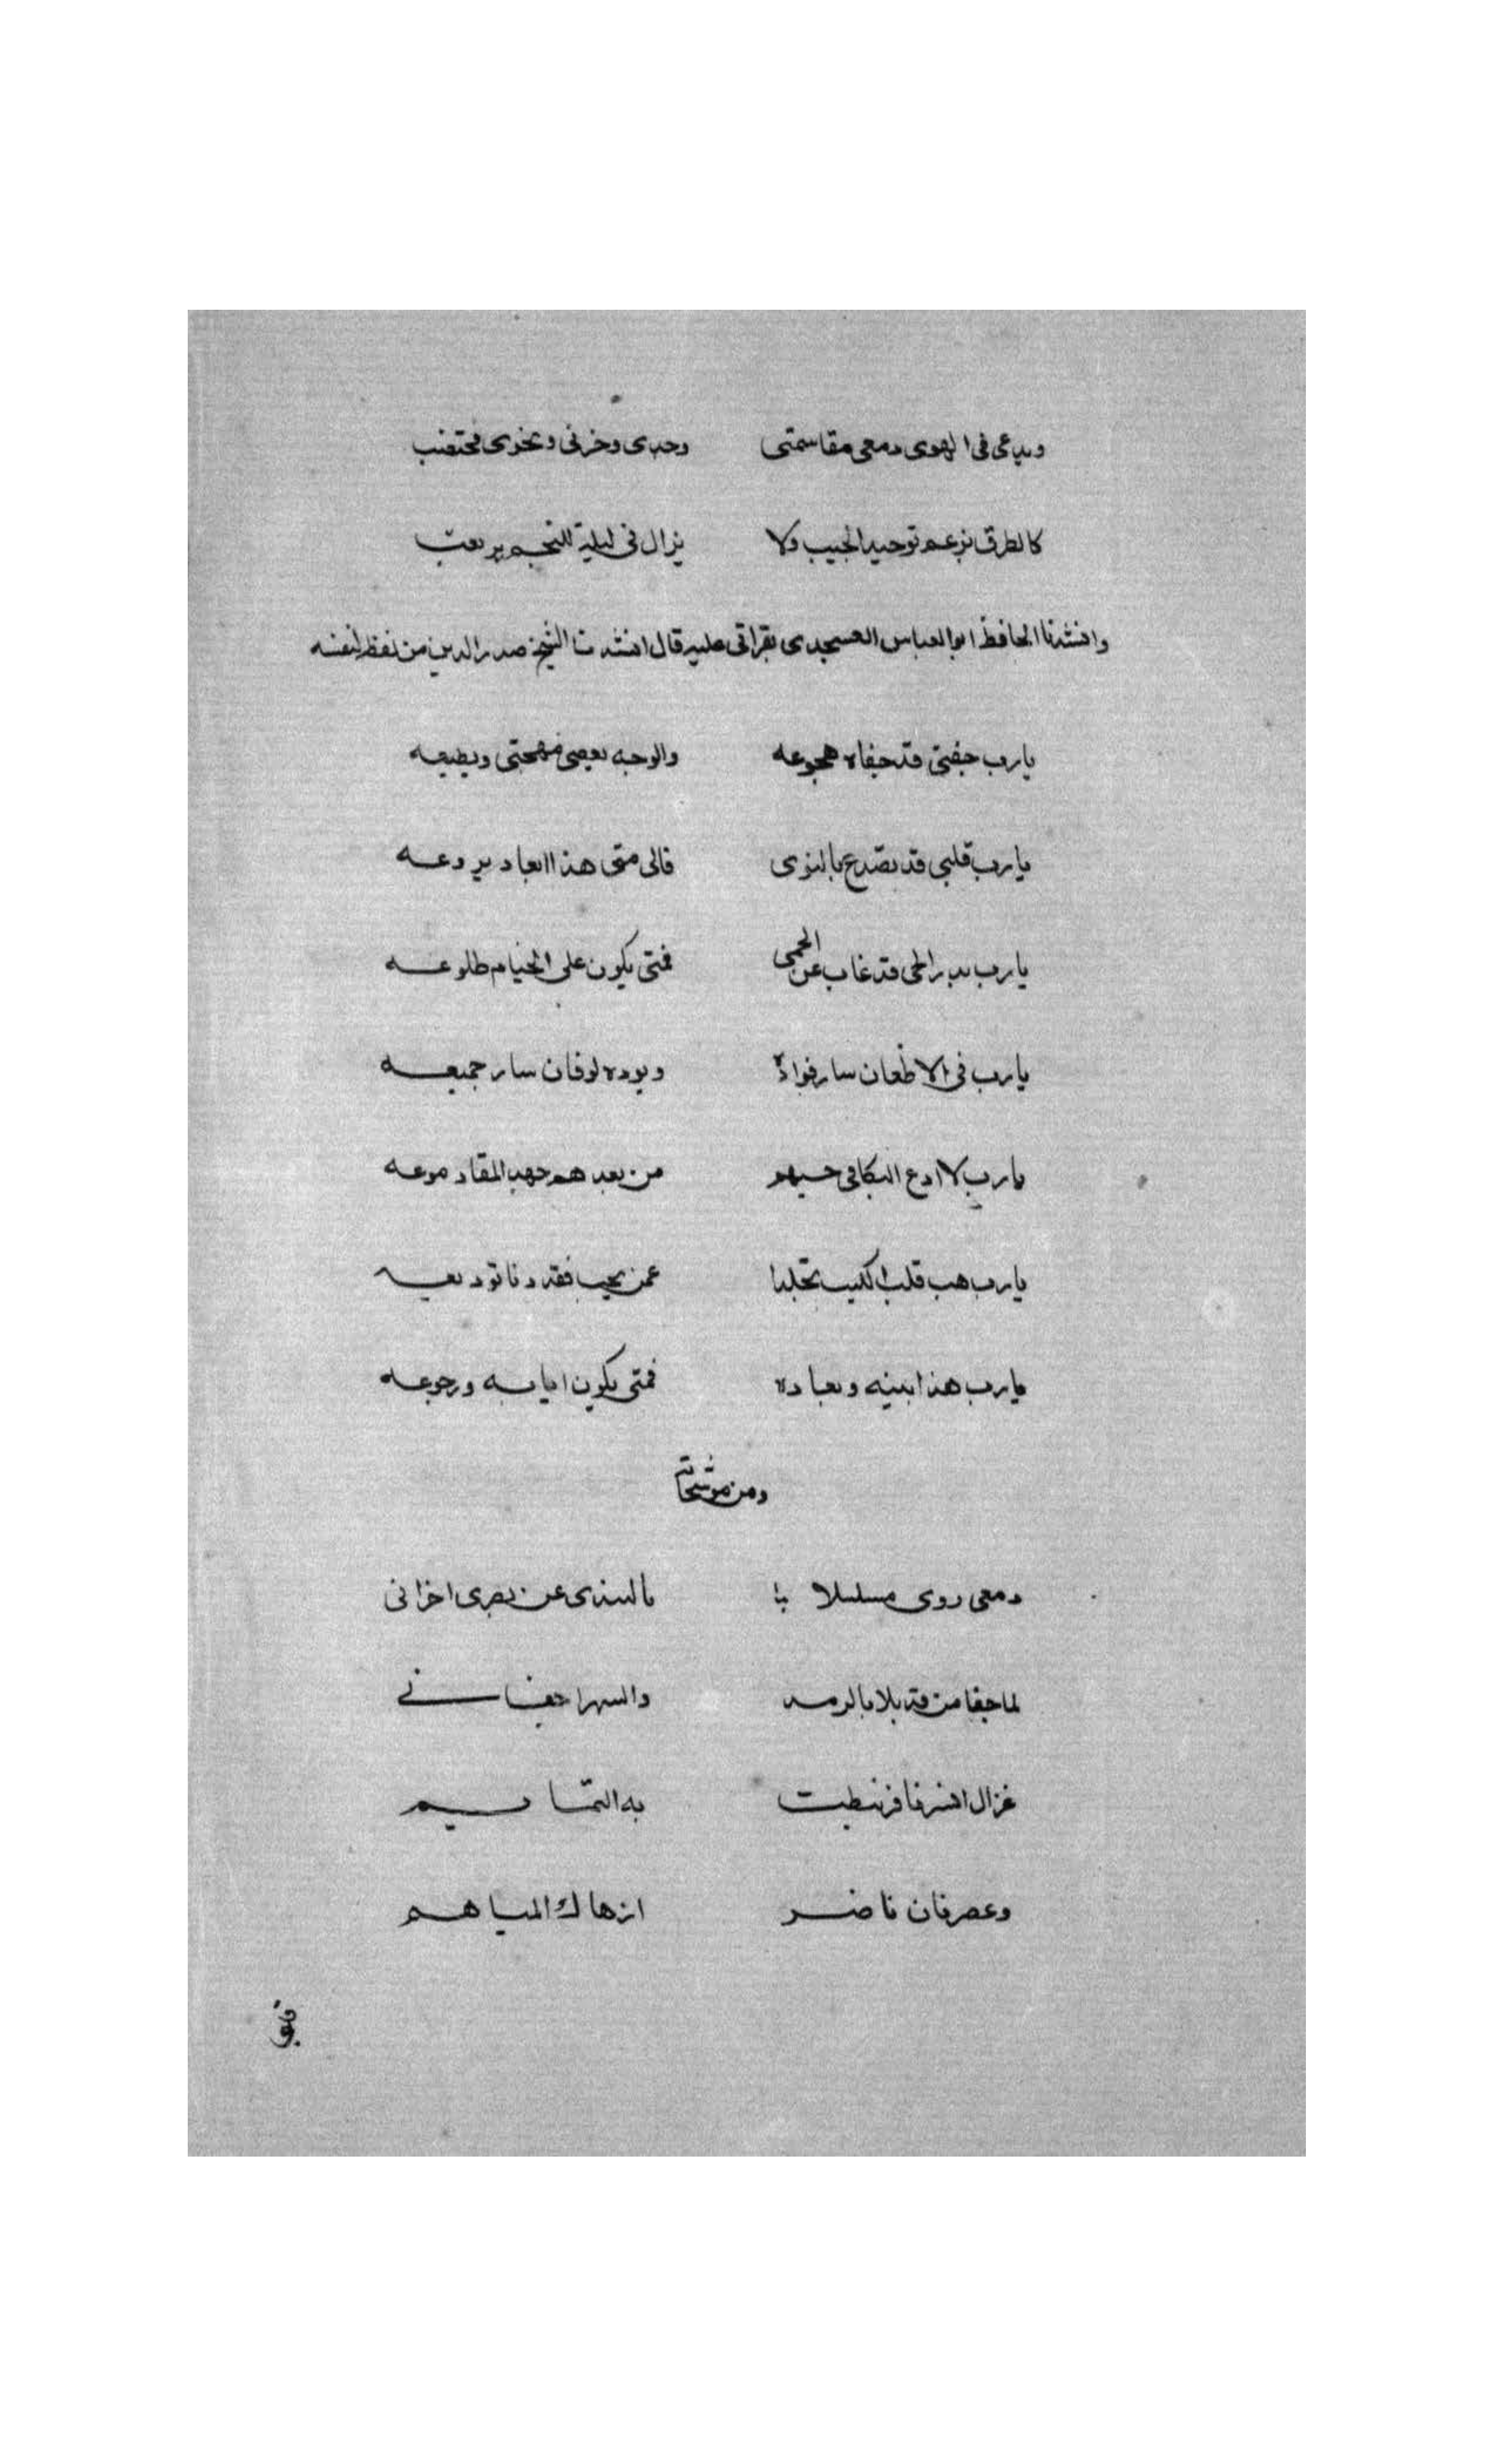 ويدعى فى الهوى دمعى مقاسمتى وجدى وحزنى ويجرى فيختضب
كالطرف يزعم توحيد الحبيب ولا يزال فى ليلة للنجم يرتقب
وانشدنا الحافظ ابو العباس العسجدى بقراتى عليه قال انشدنا الشيخ صدر الدين من لفظه لنفسه
يارب جفنى قد جفاه هجوعه والوجد يعصى مهجتى ويطيعه
يارب قلبى قد تصدع بالنوى فالى متى هذا البعاد يروعه
يارب بدر الحى قد غاب عن الحمى فمتى يكون على الخيام طلوعه
يارب فى الاظعان سار فواده وبوده لو فان سار جميعه
يارب لا ادع البكا فى حبهم من بعدهم جهد المقل دموعه
يارب هب قلب الكئيب تجلدا عمن يحب فقد دنا توديعه
يارب هذا بينه وبعاده فمتى يكون ايابه ورجوعه
ومن موشحاته
دمعى روى مسلسلا با بالسندى عن بصرى احزانى
لما جفا من قد بلا بالرمد والسهر اجفانى
غزال انس نافر نيطت به التمايم
وعصر فان ناضر ازهاك المباهم